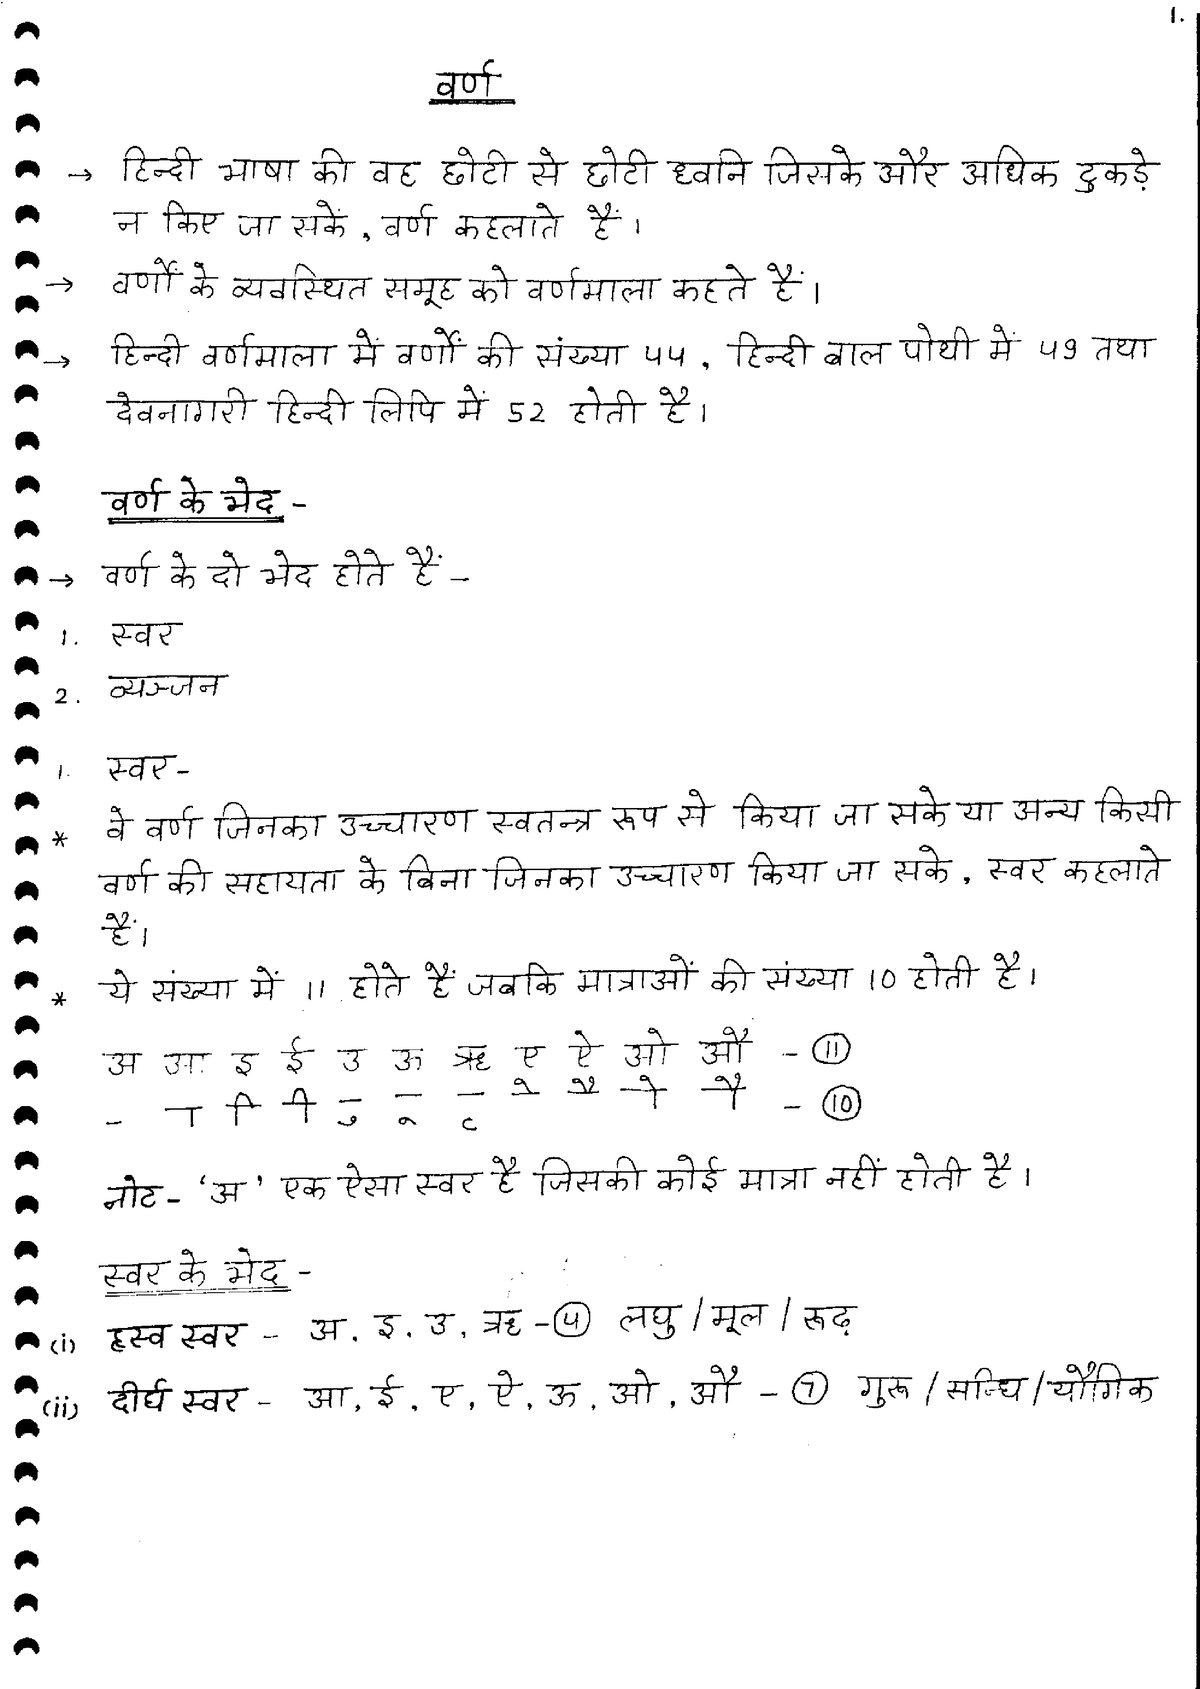 1.
वर्ण
→ हिन्दी भाषा की वह छोटी से छोटी ध्वनि जिसके और अधिक टुकड़े
न किए जा सकें, वर्ण कहलाते हैं।
→ वर्णों के व्यवस्थित समूह को वर्णमाला कहते हैं।
→ हिन्दी वर्णमाला में वर्णों की संख्या 44, हिन्दी बाल पोथी में 49 तथा
देवनागरी हिन्दी लिपि में 52 होती है।
वर्ण के भेद -
→ वर्ण के दो भेद होते हैं -
1. स्वर
2. व्यञ्जन
1. स्वर -
* वे वर्ण जिनका उच्चारण स्वतन्त्र रूप से किया जा सके या अन्य किसी
वर्ण की सहायता के बिना जिनका उच्चारण किया जा सके, स्वर कहलाते
हैं।
* ये संख्या में 11 होते हैं जबकि मात्राओं की संख्या 10 होती है।
अ आ इ ई उ ऊ ऋ ए ऐ ओ औ - 11
- ा ि ी ु ू ृ े ै ो ौ - 10
नोट - 'अ' एक ऐसा स्वर है जिसकी कोई मात्रा नहीं होती है।
स्वर के भेद -
(i) ह्रस्व स्वर - अ, इ, उ, ऋ - 4 लघु / मूल / रूढ़
(ii) दीर्घ स्वर - आ, ई, ए, ऐ, ऊ, ओ, औ - 7 गुरू / सन्धि / यौगिक